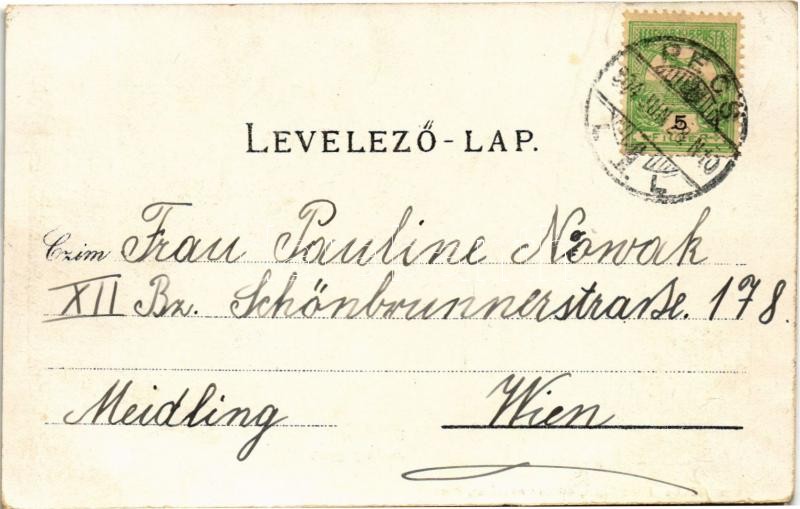 LEVELEZŐ-LAP.
PÉCS
5
Czim Frau Pauline Nowak
XII Bz. Schönbrunnerstraße. 178.
Meidling Wien